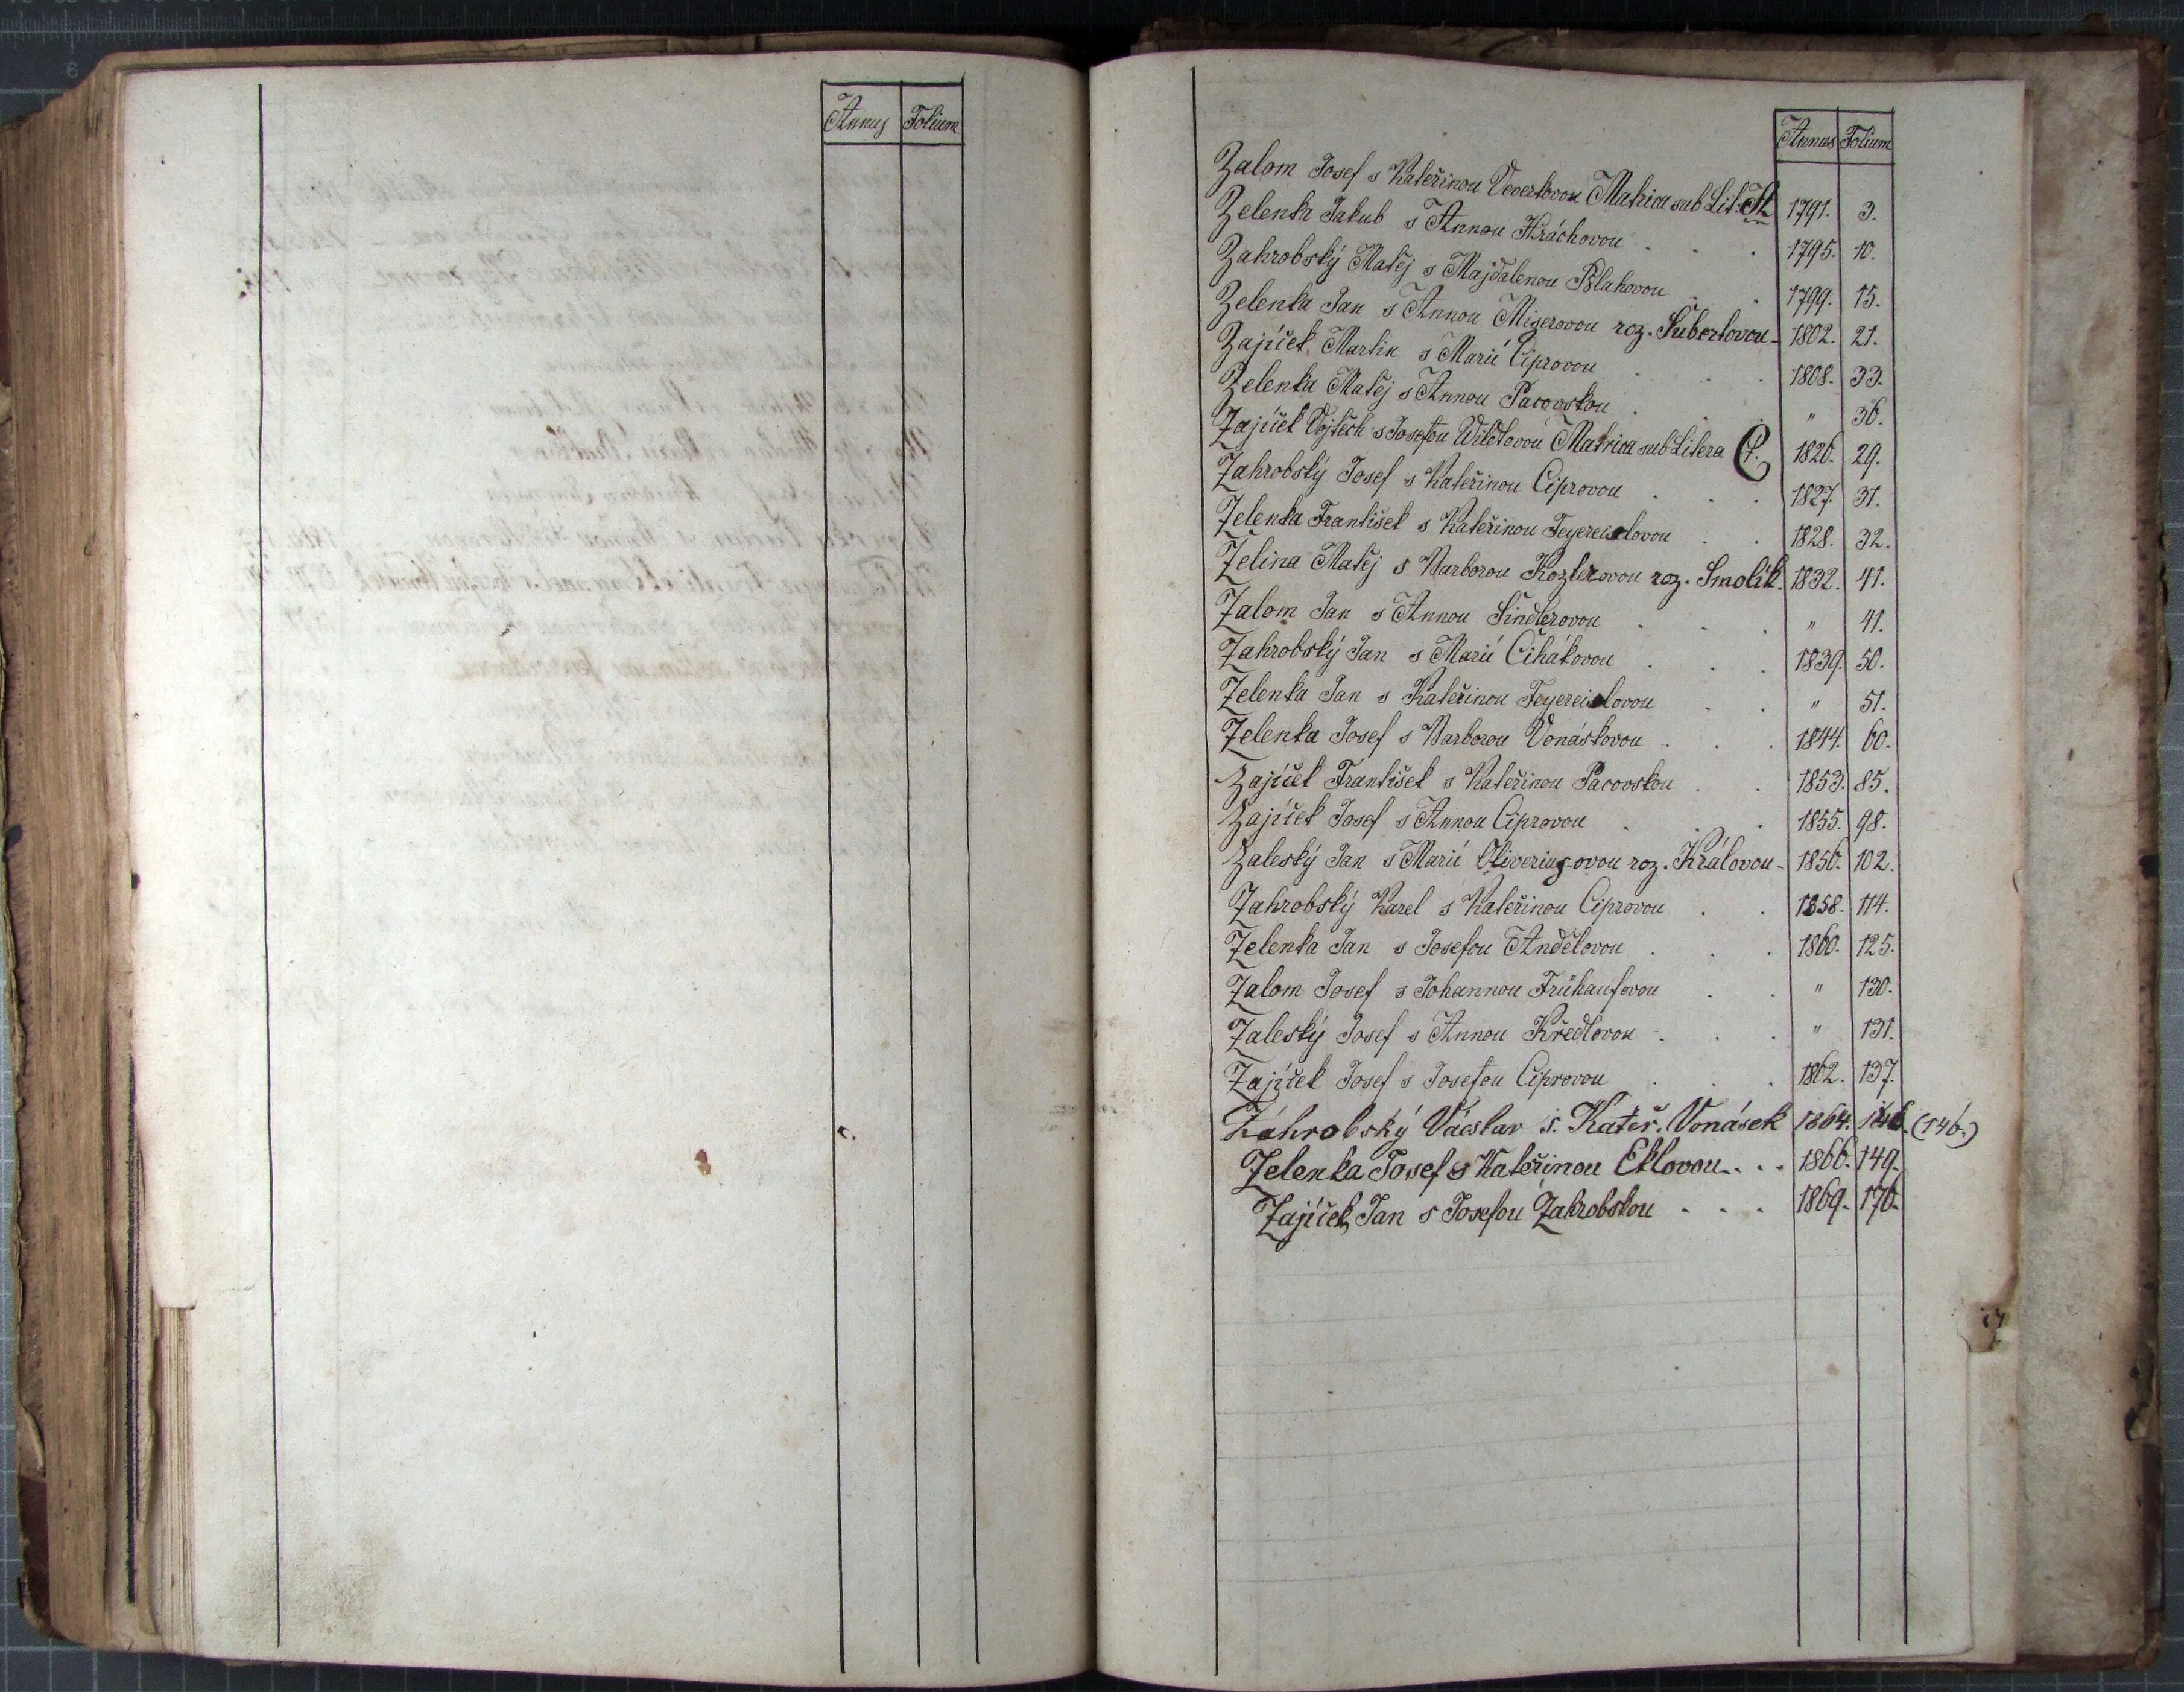 Annus Folium
Annus Folium
Zalom Josef s Kateřinou Vevertovou Matrica sub Lit. 1791. 3.
Zelenka Jakub s Annou Hráchovou . . . 1795. 10.
Zahrobský Matěj s Majdalenou Blahovou . . 1799. 15.
Zelenka Jan s Annou Migerovou roz. Šubertovou - 1802. 21.
Zajíček Martin s Marií Ciprovou . . . 1808. 33.
Zelenka Matěj s Annou Pacovskou . . . " 36.
Zajíček Vojtěch s Josefou Matrica sub Litera 1826. 29.
Zahrobský Josef s Kateřinou Ciprovou . . . 1827. 31.
Zelenka František s Kateřinou Feyereislovou . . 1828. 32.
Zelina Matěj s Barborou Kozlerovou roz. Smolík. 1832. 41.
Zalom Jan s Annou Šindlerovou . . . " 41.
Zahrobský Jan s Marií Čihákovou . . . 1839. 50.
Zelenka Jan s Kateřinou Feyereislovou . . " 51.
Zelenka Josef s Barborou Vonáskovou . . . 1844. 60.
Zajíček František s Kateřinou Pacovskou . . 1853. 85.
Zajíček Josef s Annou Ciprovou . . . 1855. 98.
Zaleský Jan s Marií Oliverius-ovou roz. Královou - 1856. 102.
Zahrobský Karel s Kateřinou Ciprovou . . 1858. 114.
Zelenka Jan s Josefou Andělovou . . . 1860. 125.
Zalom Josef s Johannou Frühaufovou . . " 130.
Zaleský Josef s Annou Kředlovou . . . " 131.
Zajíček Josef s Josefou Ciprovou . . . 1862. 137.
Záhrobský Václav s. Kateř. Vonásek 1864. 146. (146.)
Zelenka Josef s Kateřinou Eklovou . . . 1866. 149.
Zajíček Jan s Josefou Zahrobskou . . . 1869. 176.